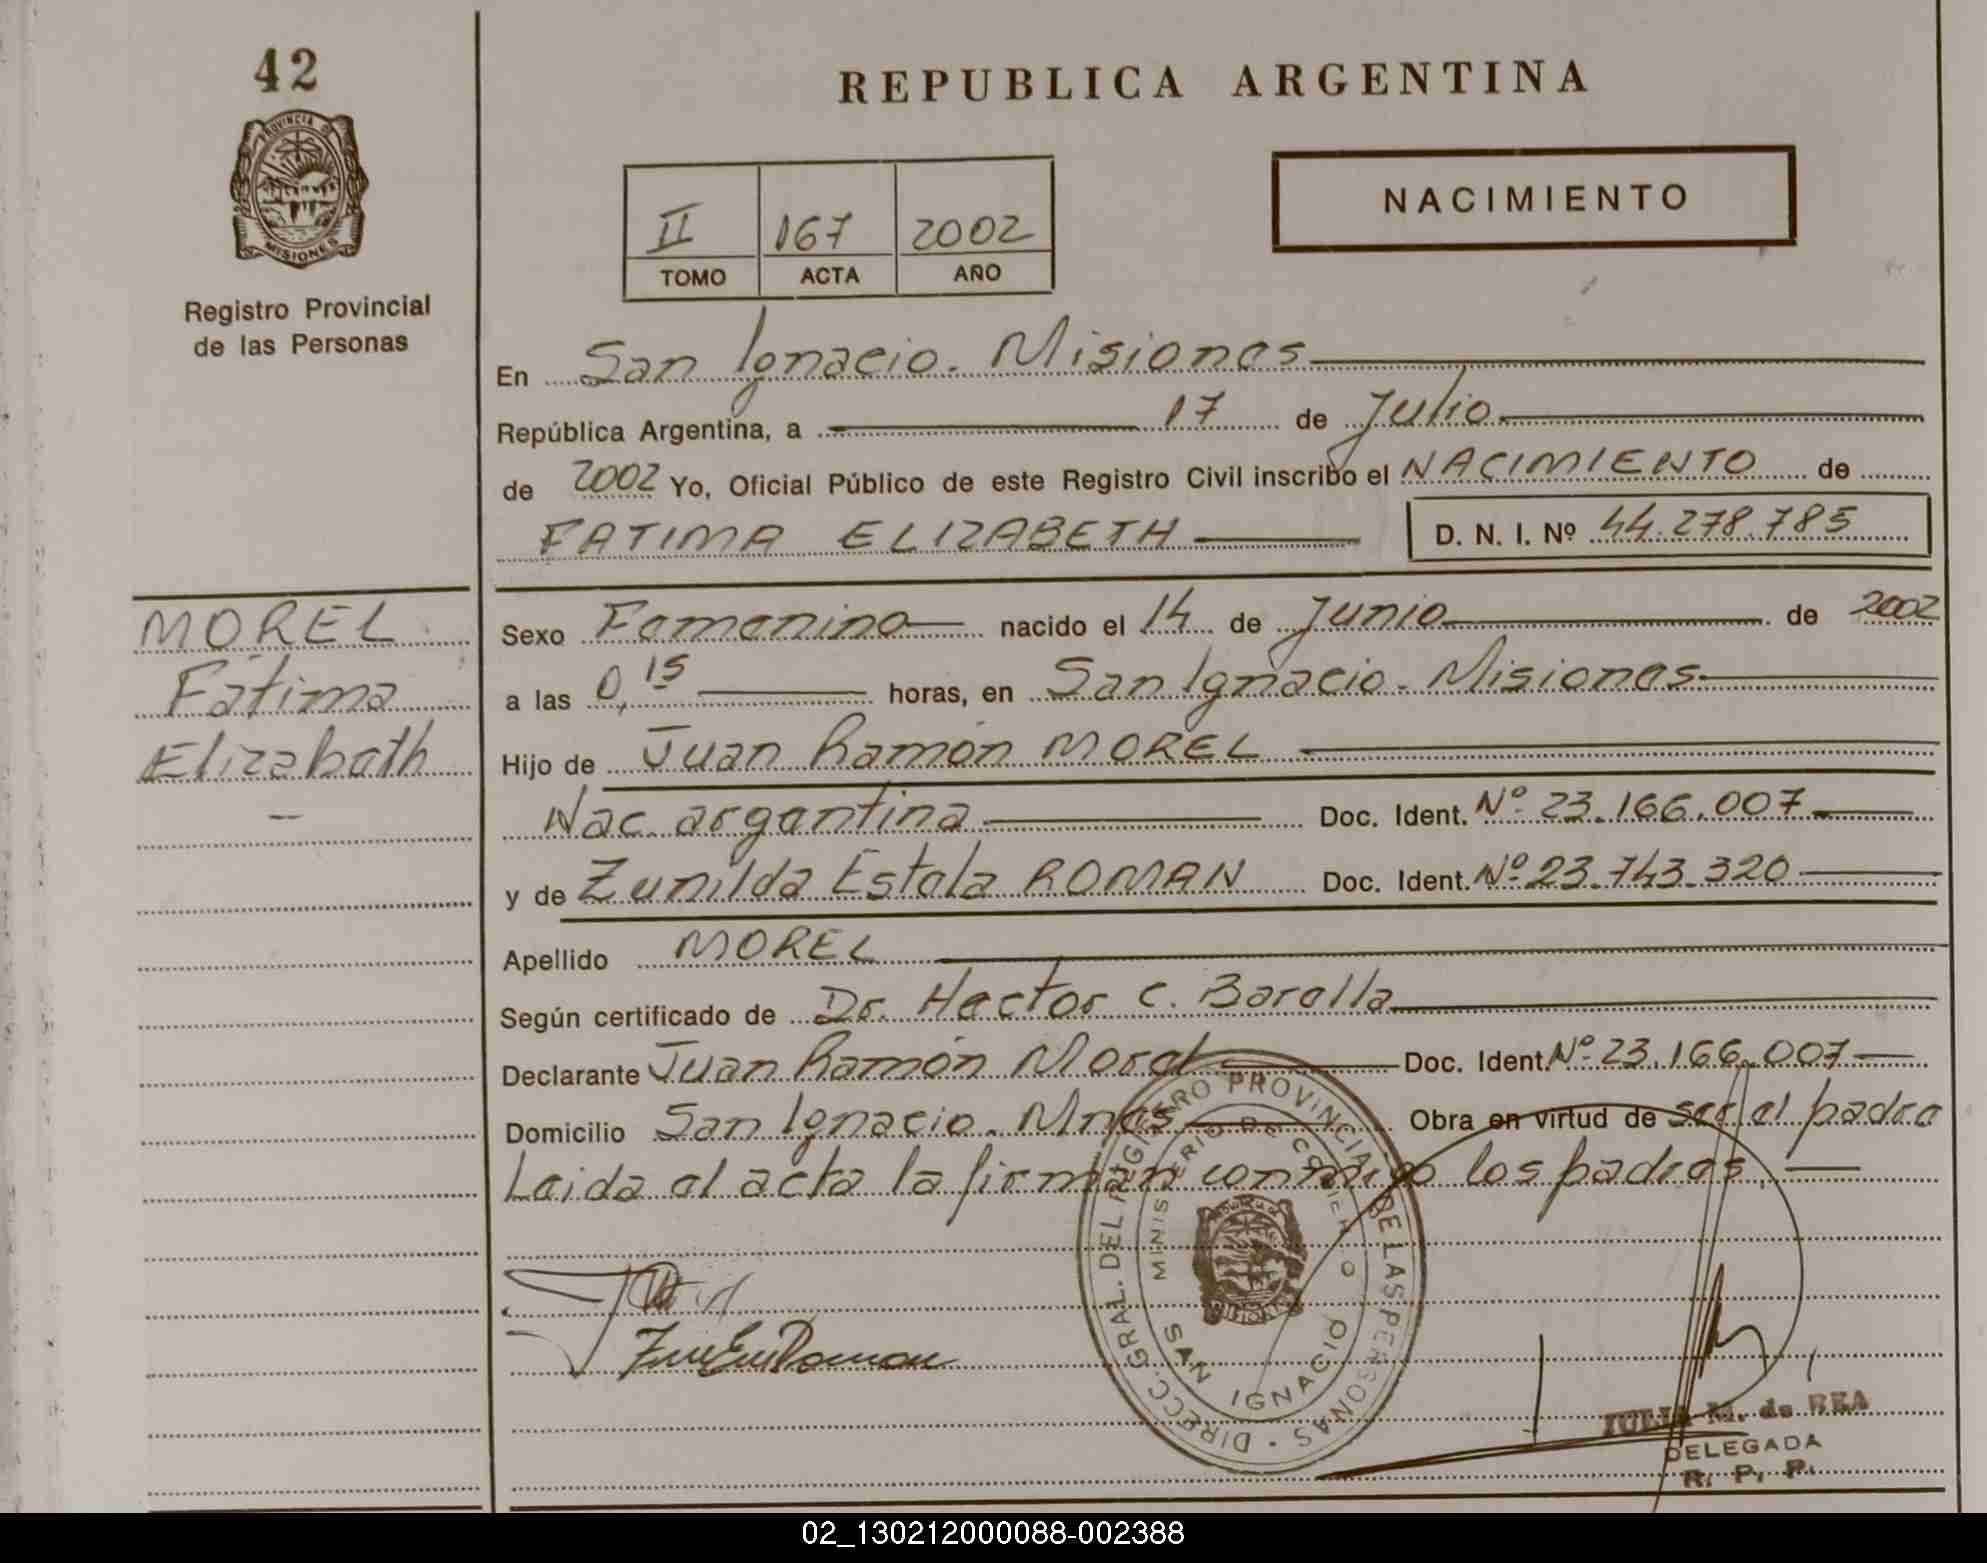 42
PROVINCIA DE
MISIONES
Registro Provincial
de las Personas
REPUBLICA ARGENTINA
NACIMIENTO
II 167 2002
TOMO ACTA AÑO
En San Ignacio. Misiones
República Argentina, a 17 de Julio
de 2002 Yo, Oficial Público de este Registro Civil inscribo el NACIMIENTO de
FATIMA ELIZABETH D. N. I. Nº 44.278.785
MOREL
Fátima
Elizabeth
Sexo Femenino nacido el 14 de Junio de 2002
a las 0,15 horas, en San Ignacio. Misiones
Hijo de Juan Ramón MOREL
Nac. argentina Doc. Ident. Nº 23.166.007
y de Zunilda Estela ROMAN Doc. Ident. Nº 23.743.320
Apellido MOREL
Según certificado de Dr. Hector C. Barella
Declarante Juan Ramón Morel Doc. Ident. Nº 23.166.007
Domicilio San Ignacio. Mnes Obra en virtud de ser el padre
Leida el acta la firman conmigo los padres.
DIRECC. GRAL. DEL REGISTRO PROVINCIAL DE LAS PERSONAS
MINISTERIO DE GOBIERNO
SAN IGNACIO
JULIA M. de REA
DELEGADA
R. P. P.
02_130212000088-002388